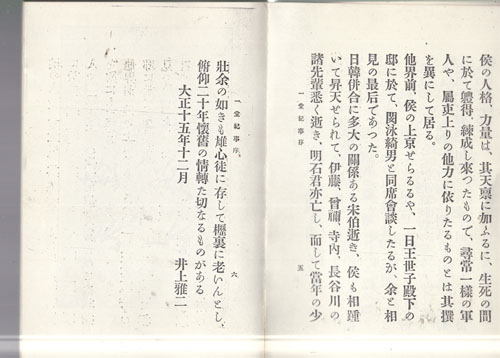 侯の人格、力量は、其天禀に加ふるに、生死の間
に於て軆得、練成し來つたもので、尋常一樣の軍
人や、屬吏上りの他力に依りたるものとは其撰
を異にして居る。
他界前、侯の上京せらるるや、一日王世子殿下の
邸に於て、閔泳綺男と同席會談したるが、余と相
見の最后であつた。
日韓併合に多大の關係ある宋伯逝き、侯も相踵
いて昇天せられて、伊藤、曾禰、寺内、長谷川の
諸先輩悉く逝き、明石君亦亡し、而して當年の少
一堂紀事序
五
壯余の如きも雄心徒に存して櫪裏に老いんとし、
俯仰二十年懷舊の情轉た切なるものがある
大正十五年十二月
井上雅二
一堂紀事序
六